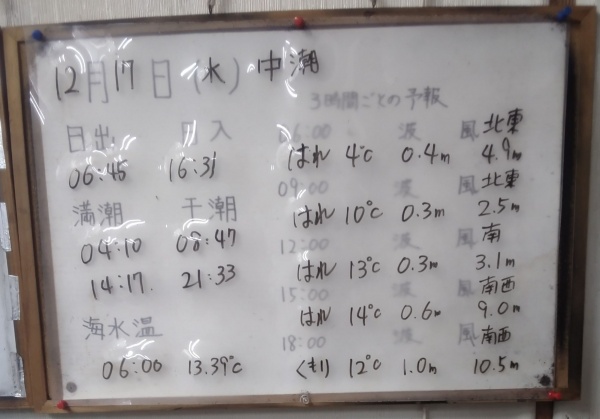 12月17日(水) 中潮
3時間ごとの予報
日出 日入
06:45 16:31
満潮 干潮
04:10 08:47
14:17. 21:33
海水温
06:00 13.39℃
06:00 波 風 北東
はれ 4℃ 0.4m 4.9m
09:00 波 風 北東
はれ 10℃ 0.3m 2.5m
12:00 波 風 南
はれ 13℃ 0.3m 3.1m
15:00 波 風 南西
はれ 14℃ 0.6m 9.0m
18:00 波 風 南西
くもり 12℃ 1.0m 10.5m